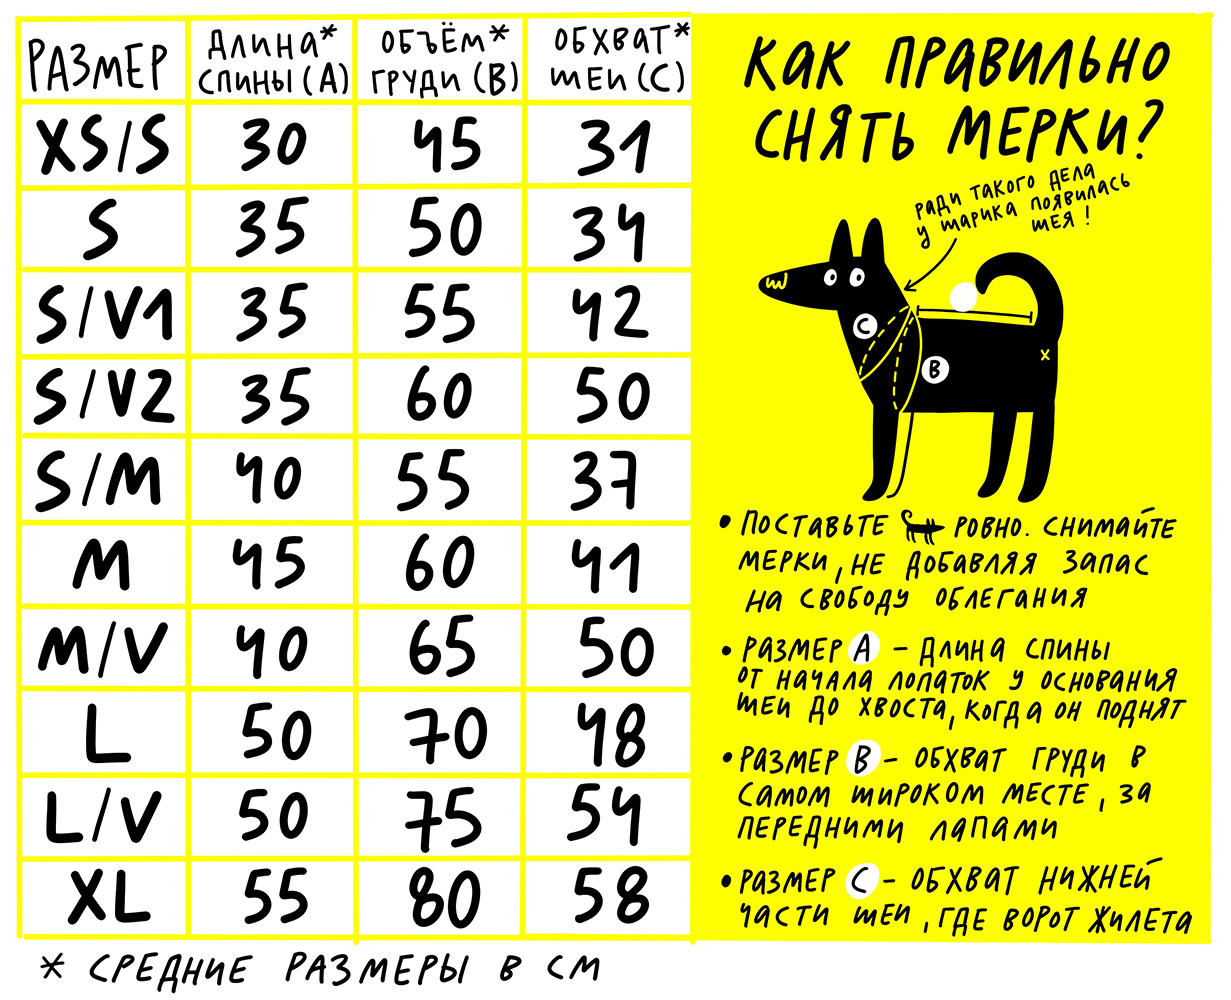 РАЗМЕР ДЛИНА* СПИНЫ (А) ОБЪЁМ* ГРУДИ (В) ОБХВАТ* ШЕИ (С)
XS/S 30 45 31
S 35 50 34
S/V1 35 55 42
S/V2 35 60 50
S/M 40 55 37
M 45 60 41
M/V 40 65 50
L 50 70 48
L/V 50 75 54
XL 55 80 58
* СРЕДНИЕ РАЗМЕРЫ В СМ
КАК ПРАВИЛЬНО
СНЯТЬ МЕРКИ?
РАДИ ТАКОГО ДЕЛА
У ШАРИКА ПОЯВИЛАСЬ
ШЕЯ!
C
B
x
• ПОСТАВЬТЕ РОВНО. СНИМАЙТЕ
МЕРКИ, НЕ ДОБАВЛЯЯ ЗАПАС
НА СВОБОДУ ОБЛЕГАНИЯ
• РАЗМЕР А – ДЛИНА СПИНЫ
ОТ НАЧАЛА ЛОПАТОК У ОСНОВАНИЯ
ШЕИ ДО ХВОСТА, КОГДА ОН ПОДНЯТ
• РАЗМЕР В – ОБХВАТ ГРУДИ В
САМОМ ШИРОКОМ МЕСТЕ, ЗА
ПЕРЕДНИМИ ЛАПАМИ
• РАЗМЕР С – ОБХВАТ НИЖНЕЙ
ЧАСТИ ШЕИ, ГДЕ ВОРОТ ЖИЛЕТА